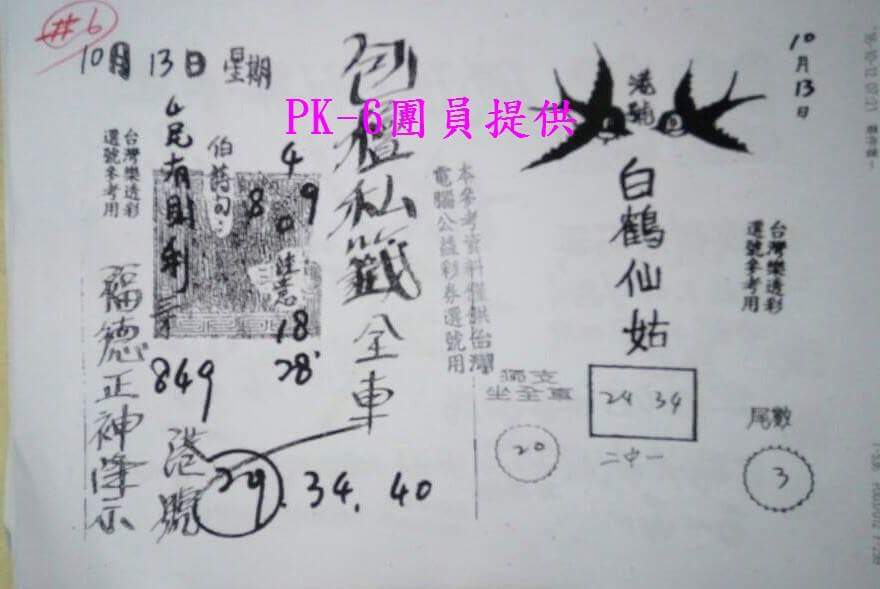 #6
10月 13日 星期
PK-6團員提供
10月13日
港號
白鶴仙姑
台灣樂透彩
選號參考用
24 34
二中一
尾數
3
獨支
車全坐
20
本參考資料僅供台灣
電腦公益彩券選號用
包種私籤全車
4 9
8 0
注意
18
28
伯籌句:
4尾有則利
849
港號
29. 34. 40
台灣樂透彩
選號參考用
福德正神降示